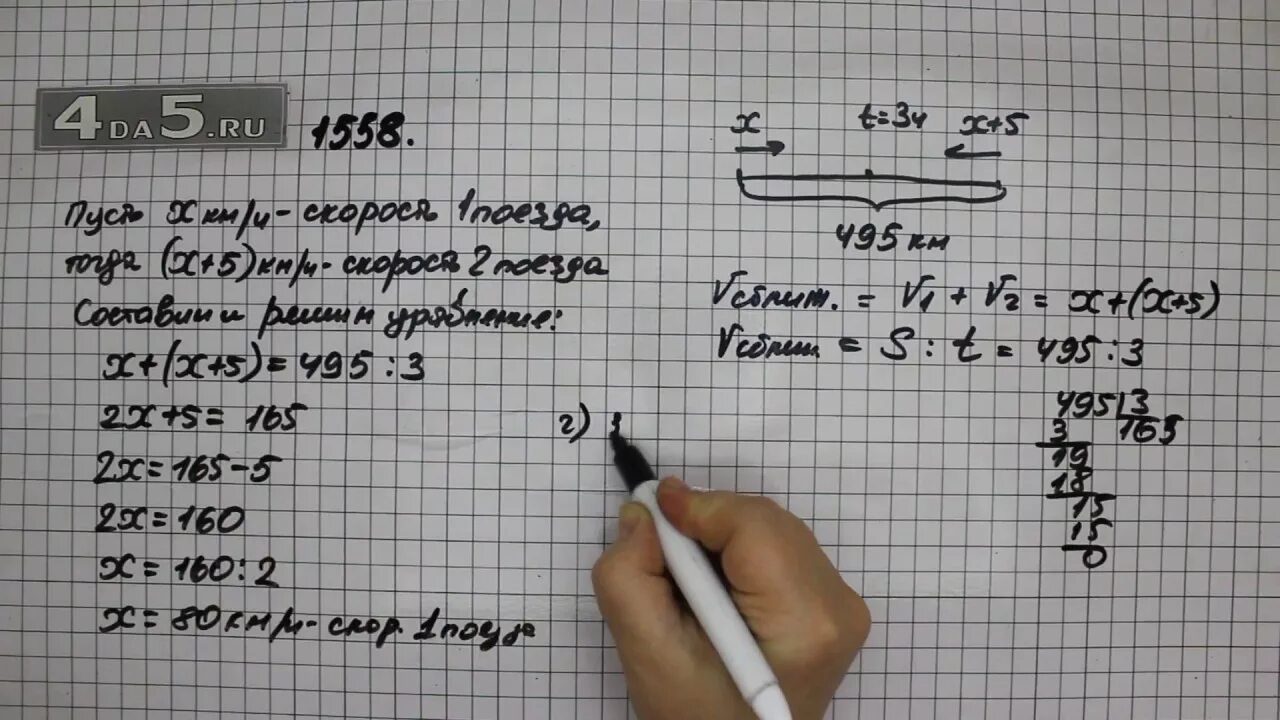 4DA5.RU
1558.
Пусть x км/ч - скорость 1 поезда,
тогда (x+5) км/ч - скорость 2 поезда
Составим и решим уравнение:
x+(x+5)=495:3
2x+5=165
2x=165-5
2x=160
x=160:2
x=80 км/ч - скор. 1 поезда
x t=3ч x+5
495 км
Vсближ. = V1 + V2 = x+(x+5)
Vсближ = S : t = 495 : 3
495 3
3 165
19
18
15
15
0
2)